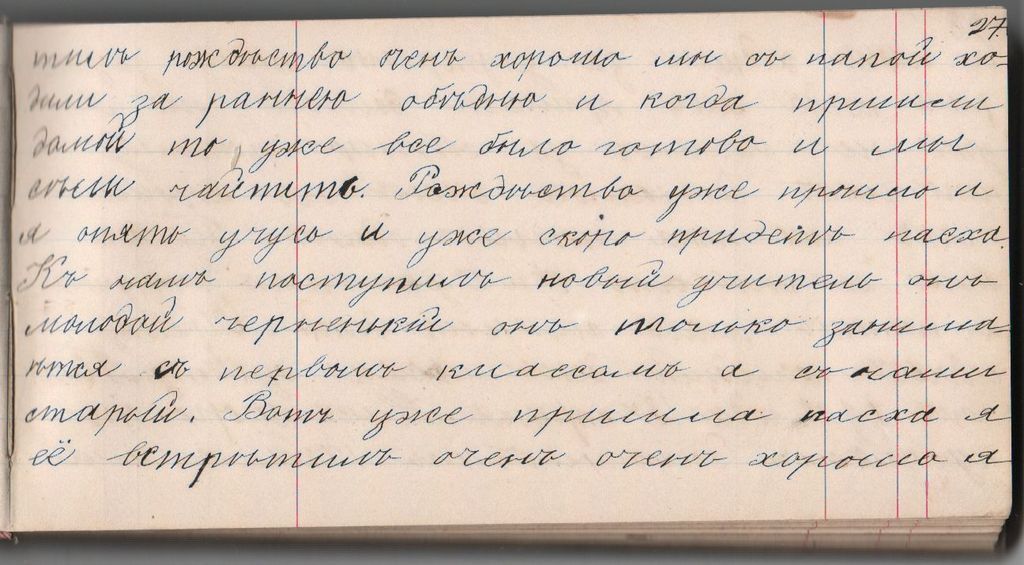 27.
тилъ рождѣство очень хорошо мы съ папой хо-
дили за раннею обѣдню и когда пришли
домой то, уже все было готово и мы
сѣли чайпить. Рождѣство уже прошло и
я опять учусь и уже скоро придетъ пасха.
Къ намъ поступилъ новый учитель онъ
молодой черненькій онъ только занима-
ѣтся съ первымъ классомъ а съ нами
старый. Вотъ уже пришла пасха я
её встрѣтилъ очень очень хорошо я